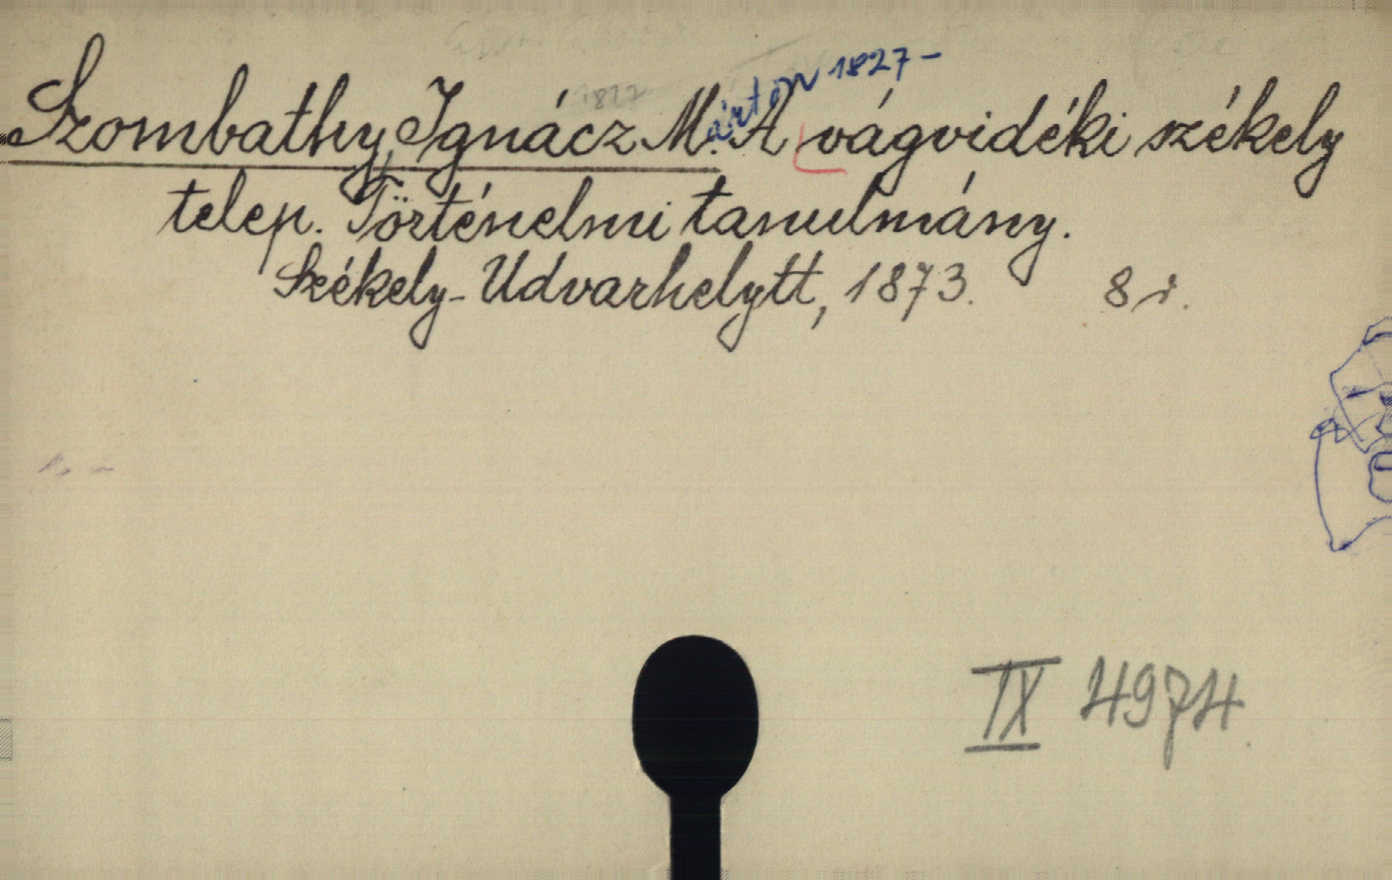 Szombathy, Ignácz M.árton 1827- A vágvidéki székely
telep. Történelmi tanulmány.
Székely-Udvarhelytt, 1873. 8 r.
IX 4974.